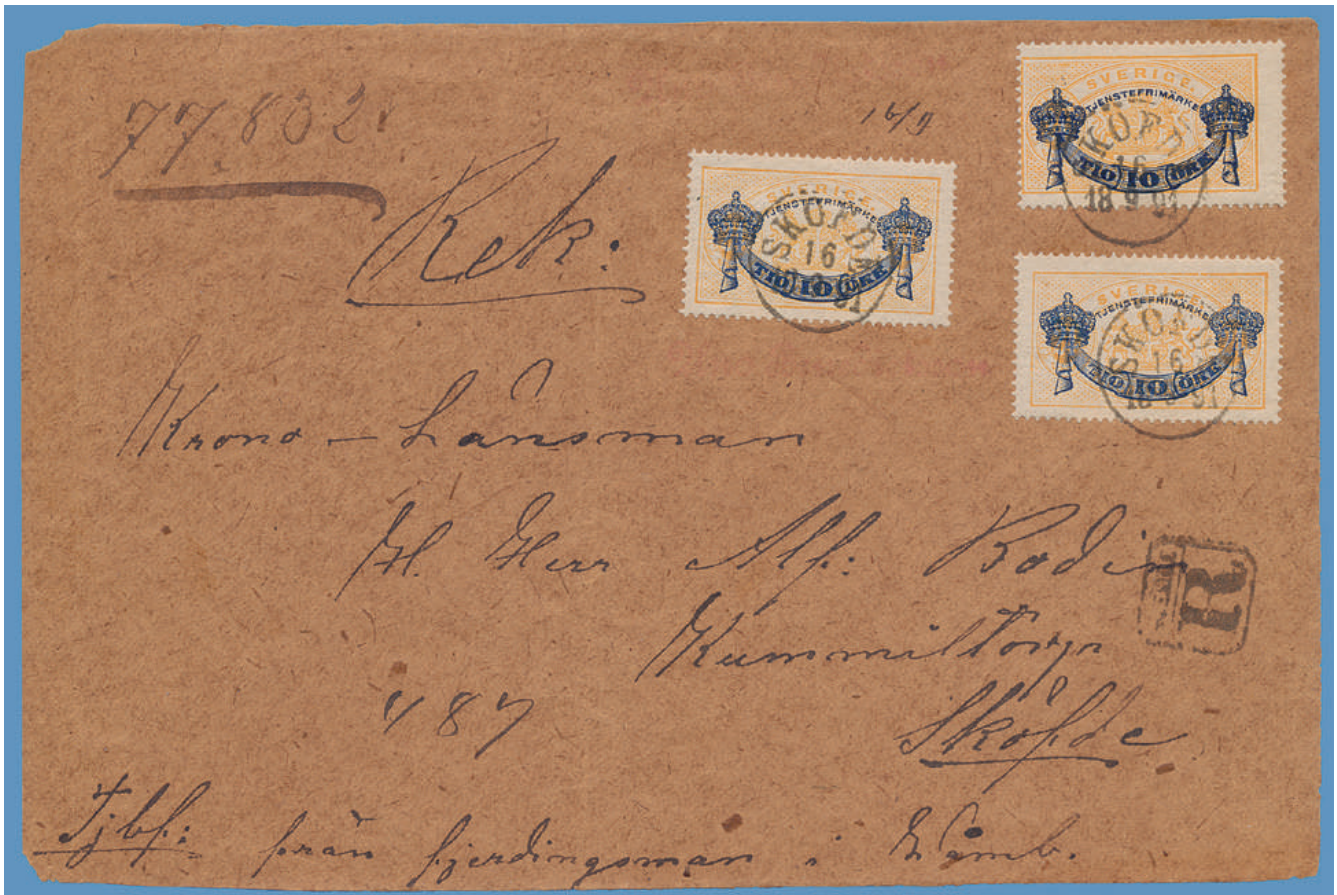 77.802.
16/9
Rek:
SVERIGE.
TJENSTEFRIMÄRKE
TIO 10 ÖRE
SKÖFDE
16
18 9 91
SVERIGE.
TJENSTEFRIMÄRKE
TIO 10 ÖRE
SKÖFDE
16
91
SVERIGE.
TJENSTEFRIMÄRKE
TIO 10 ÖRE
SKÖFDE
16
18 9 91
Krono-Länsman
Herr Alf: Bodin
R
Kummiltorp
487
Sköfde
Tjbf: från fjerdingsman i